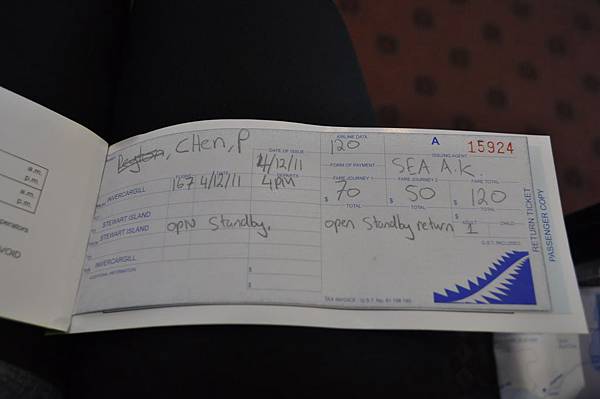 a.m.
p.m.
a.m.
p.m.
VOID
AIRLINE DATA
120
A
15924
, CHen, P
DATE OF ISSUE
4/12/11
FORM OF PAYMENT
ISSUING AGENT
SEA A.K.
INVERCARGILL
167 4/12/11
DEPARTS
4PM
FARE JOURNEY 1
$ 70
FARE JOURNEY 2
$ 50
FARE TOTAL
$ 120
STEWART ISLAND
TOTAL
TOTAL
TOTAL
STEWART ISLAND
OPN Standby.
open Standby return 1
ADULT
CHILD
INVERCARGILL
G.S.T. INCLUDED
ADDITIONAL INFORMATION
$
$
TAX INVOICE
RETURN TICKET
PASSENGER COPY